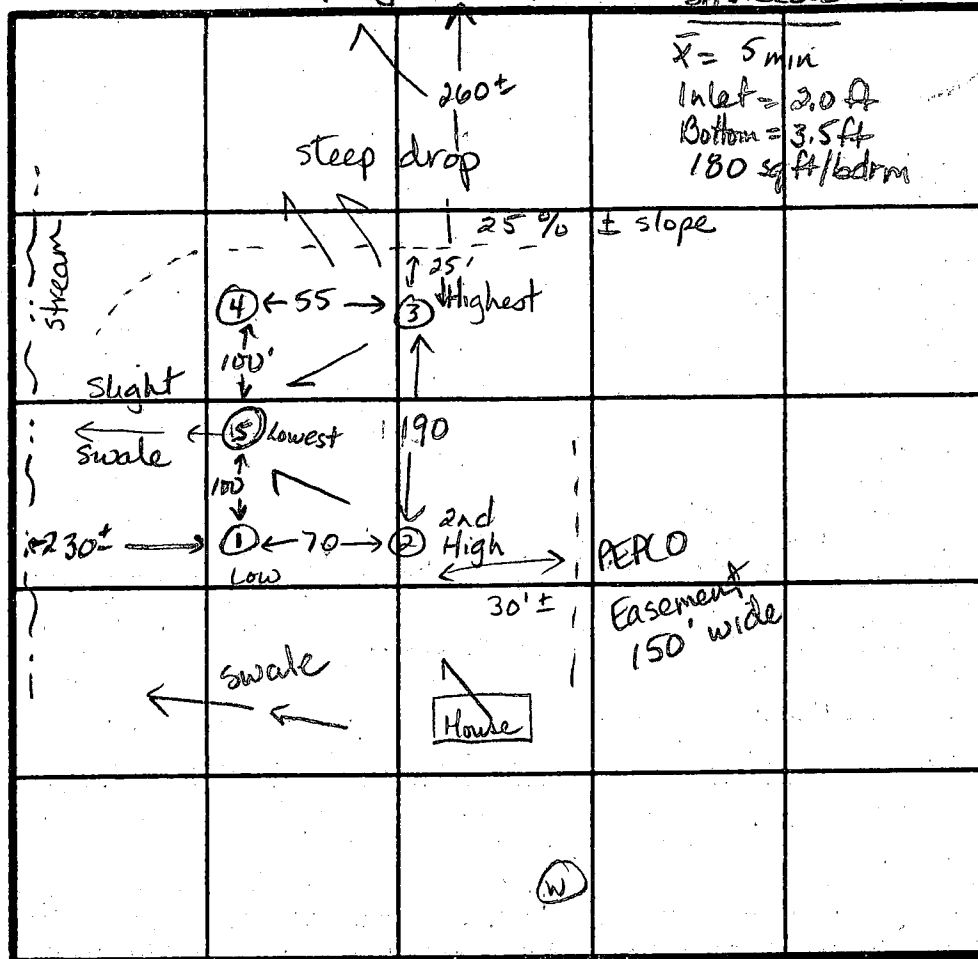 x̄ = 5 min
Inlet = 2.0 ft
Bottom = 3.5 ft
180 sq ft/bdrm
260±
steep drop
25% ± slope
stream
25'
④ ← 55 → ③ Highest
100'
Slight
swale
⑤ Lowest
190
100'
230± → ① ← 70 → ② 2nd High
Low
PEPCO
Easement
150' wide
30' ±
swale
House
W